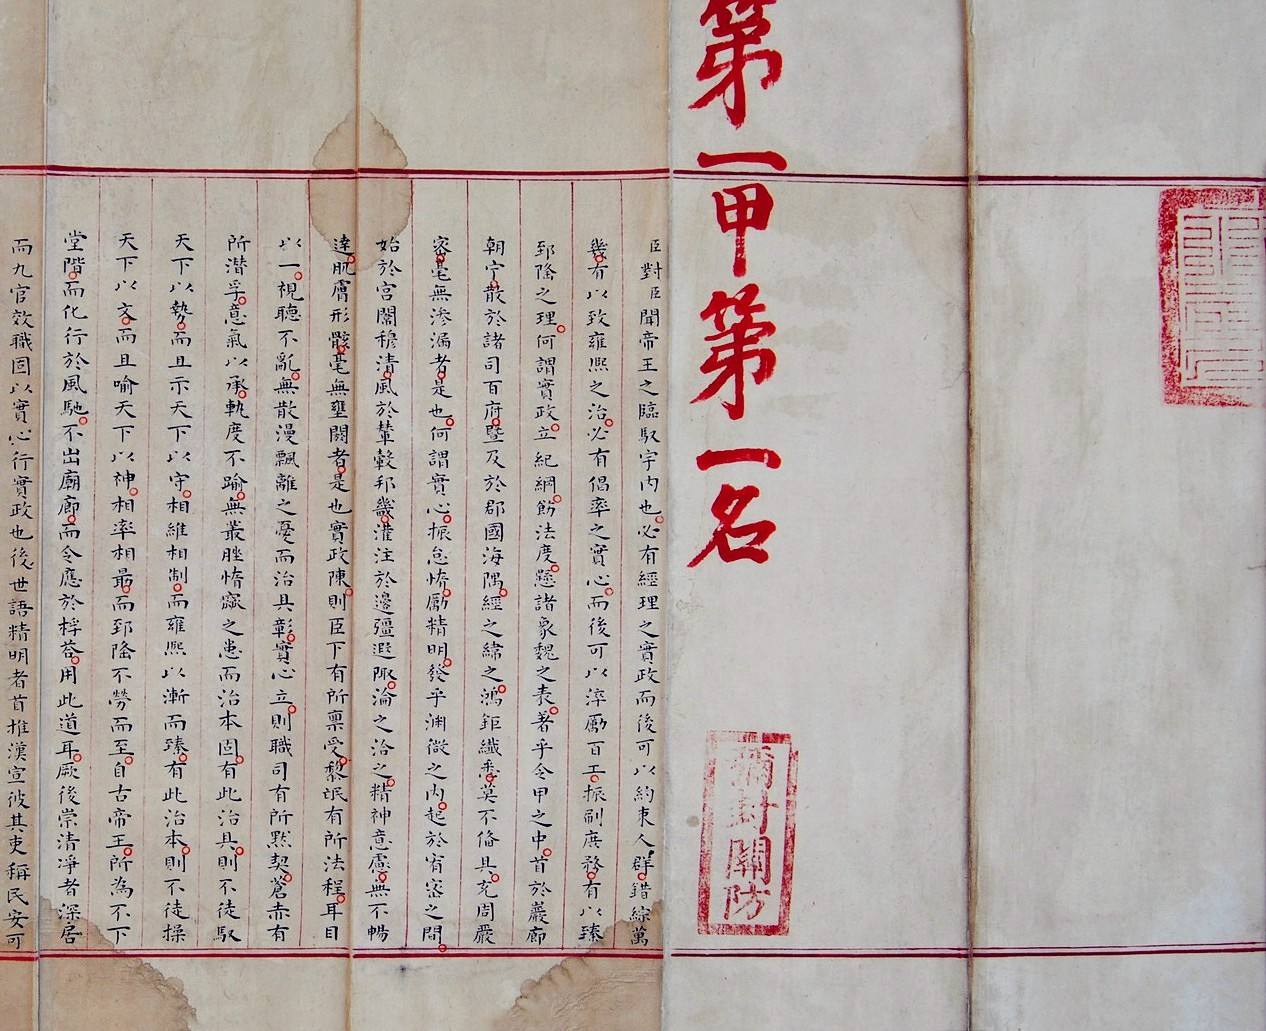 第一甲第一名
彌封關防
臣對臣聞帝王之臨馭宇內也必有經理之實政而後可以約束人群錯綜萬
幾有以致雍熙之治必有倡率之實心而後可以淬厲百工振刷庶務有以臻
郅隆之理何謂實政立紀綱飭法度懸諸象魏之表著乎令甲之中首於巖廊
朝宁散於諸司百府暨及於郡國海隅經之緯之鴻鉅纖悉莫不備具充周嚴
密毫無滲漏者是也何謂實心振怠惰勵精明發乎淵微之內起於宥密之間
始於宮闈穆清風於輦轂邦畿灌注於邊疆遐陬淪之洽之精神意慮無不暢
達肌膚形骸毫無壅閼者是也實政陳則臣下有所稟受黎氓有所法程耳目
以一視聽不亂無散漫飄離之憂而治具彰實心立則職司有所默契蒼赤有
所潛孚意氣以承軌度不踰無叢脞惰窳之患而治本固有此治具則不徒馭
天下以勢而且示天下以守相維相制而雍熙以漸而臻有此治本則不徒操
天下以文而且喻天下以神相率相最而郅隆不勞而至自古帝王所為不下
堂階而化行於風馳不出廟廊而令應於桴荅用此道耳厥後崇清凈者深居
而九官效職固以實心行實政也後世語精明者首推漢宣彼其吏稱民安可